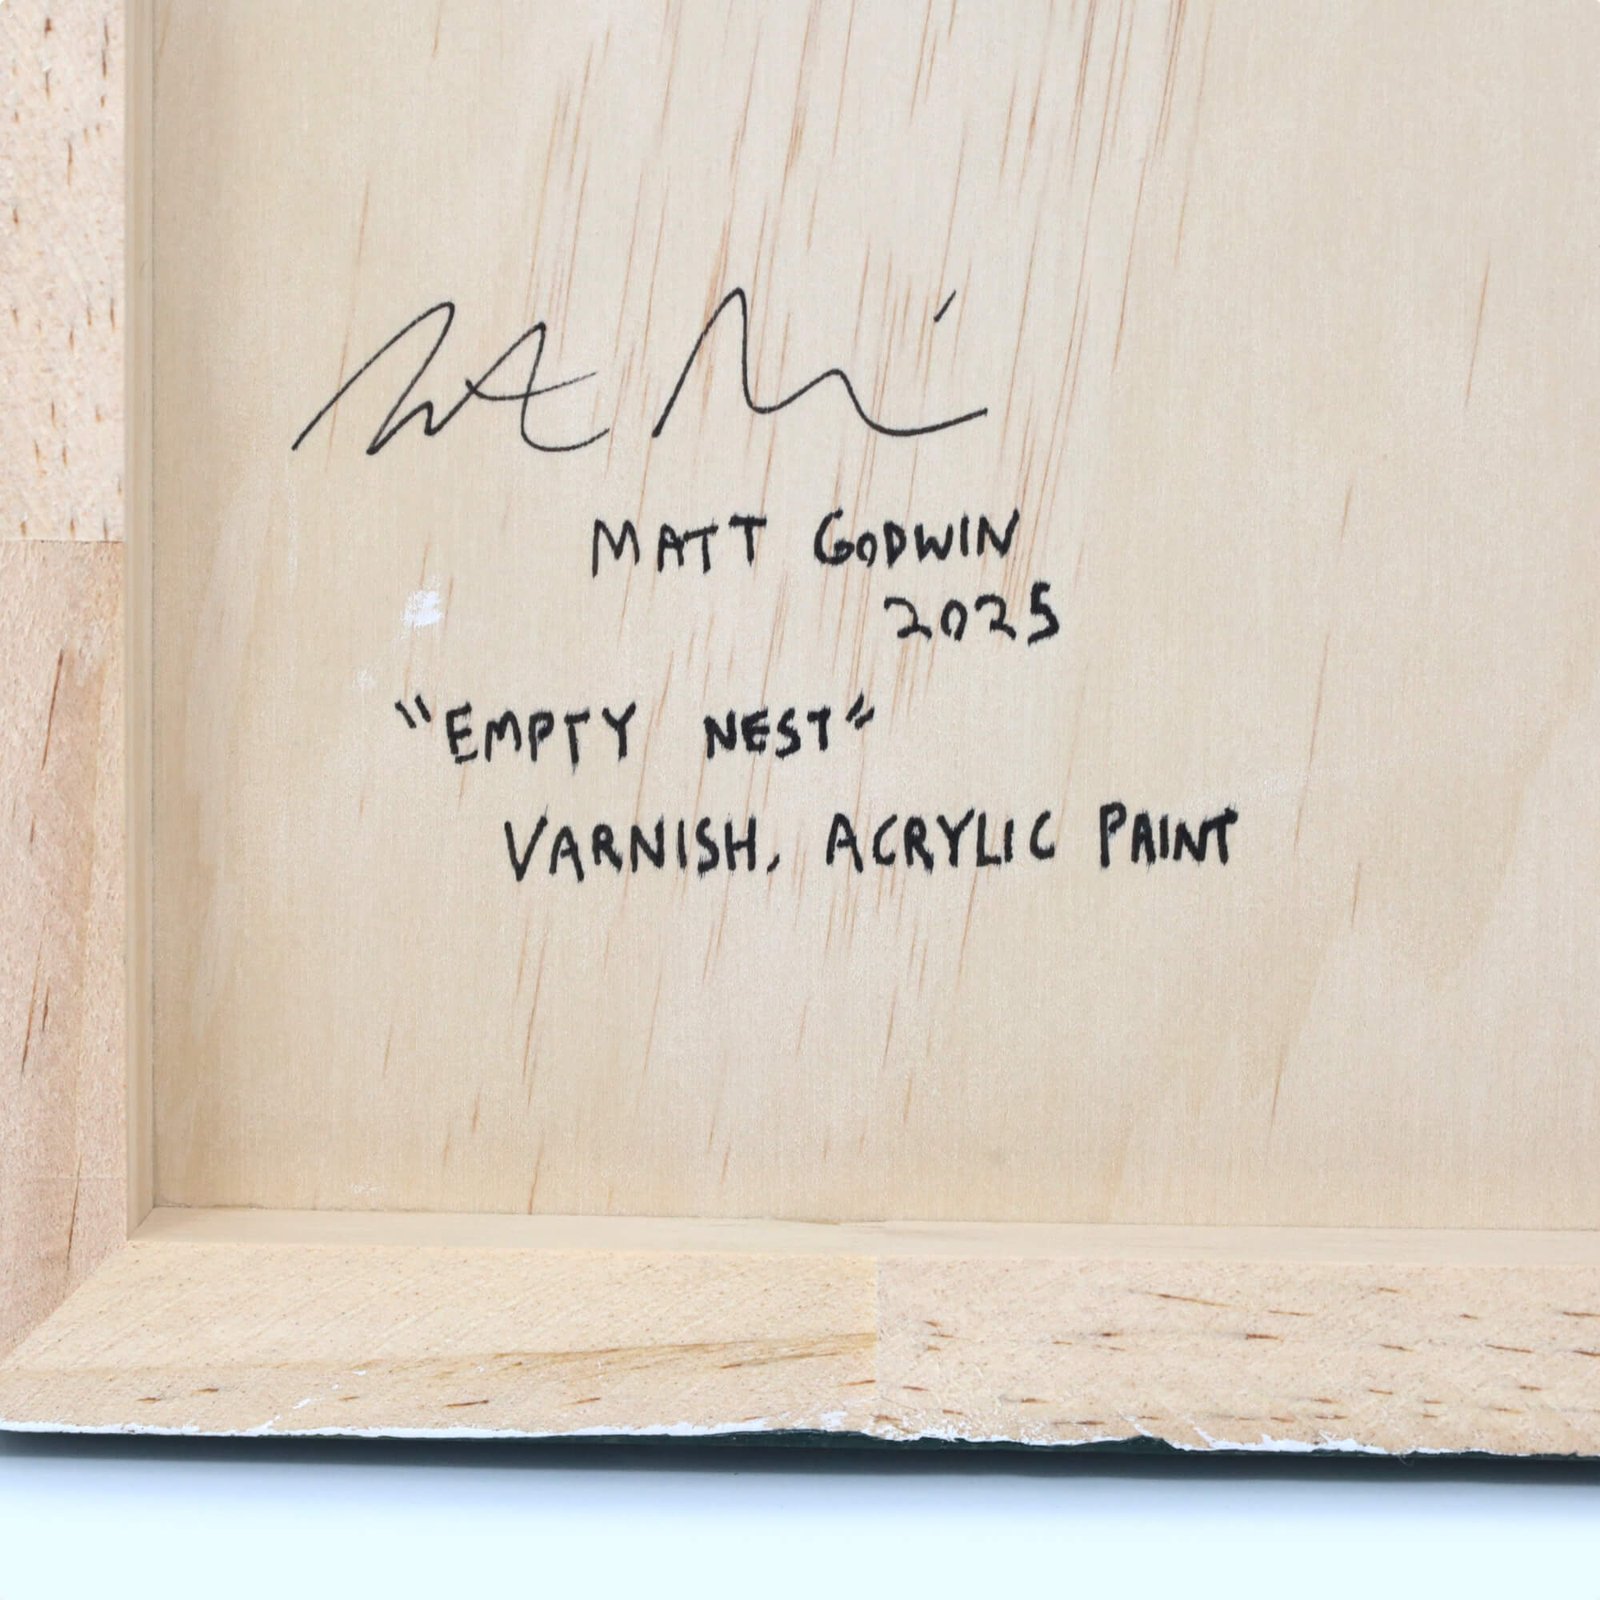 MATT GODWIN
2025
"EMPTY NEST"
VARNISH, ACRYLIC PAINT